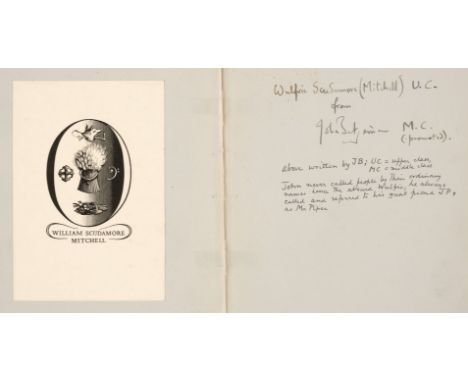 WILLIAM SCUDAMORE
MITCHELL
Wulfrie Scudamore (Mitchell) U.C.
from
John Betjeman M.C.
(promoted).
above written by JB; UC = upper class,
MC = middle class
John never called people by their ordinary
names hence the absurd Wulfrie, he always
called and referred to his great friend J.P.
as Mr Piper